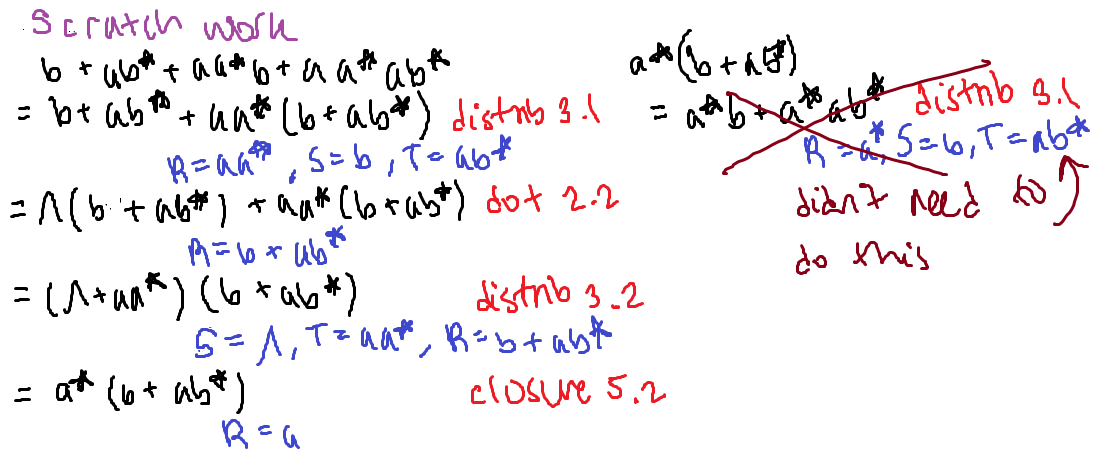 Scratch work
b + ab* + aa*b + aa*ab*
= b + ab* + aa*(b + ab*) distrib 3.1
R = aa*, S = b, T = ab*
= Λ(b + ab*) + aa*(b + ab*) dot 2.2
R = b + ab*
= (Λ + aa*)(b + ab*) distrib 3.2
S = Λ, T = aa*, R = b + ab*
= a*(b + ab*) closure 5.2
R = a
a*(b + ab*)
= a*b + a*ab* distrib 3.1
R = a*, S = b, T = ab*
didn't need to
do this